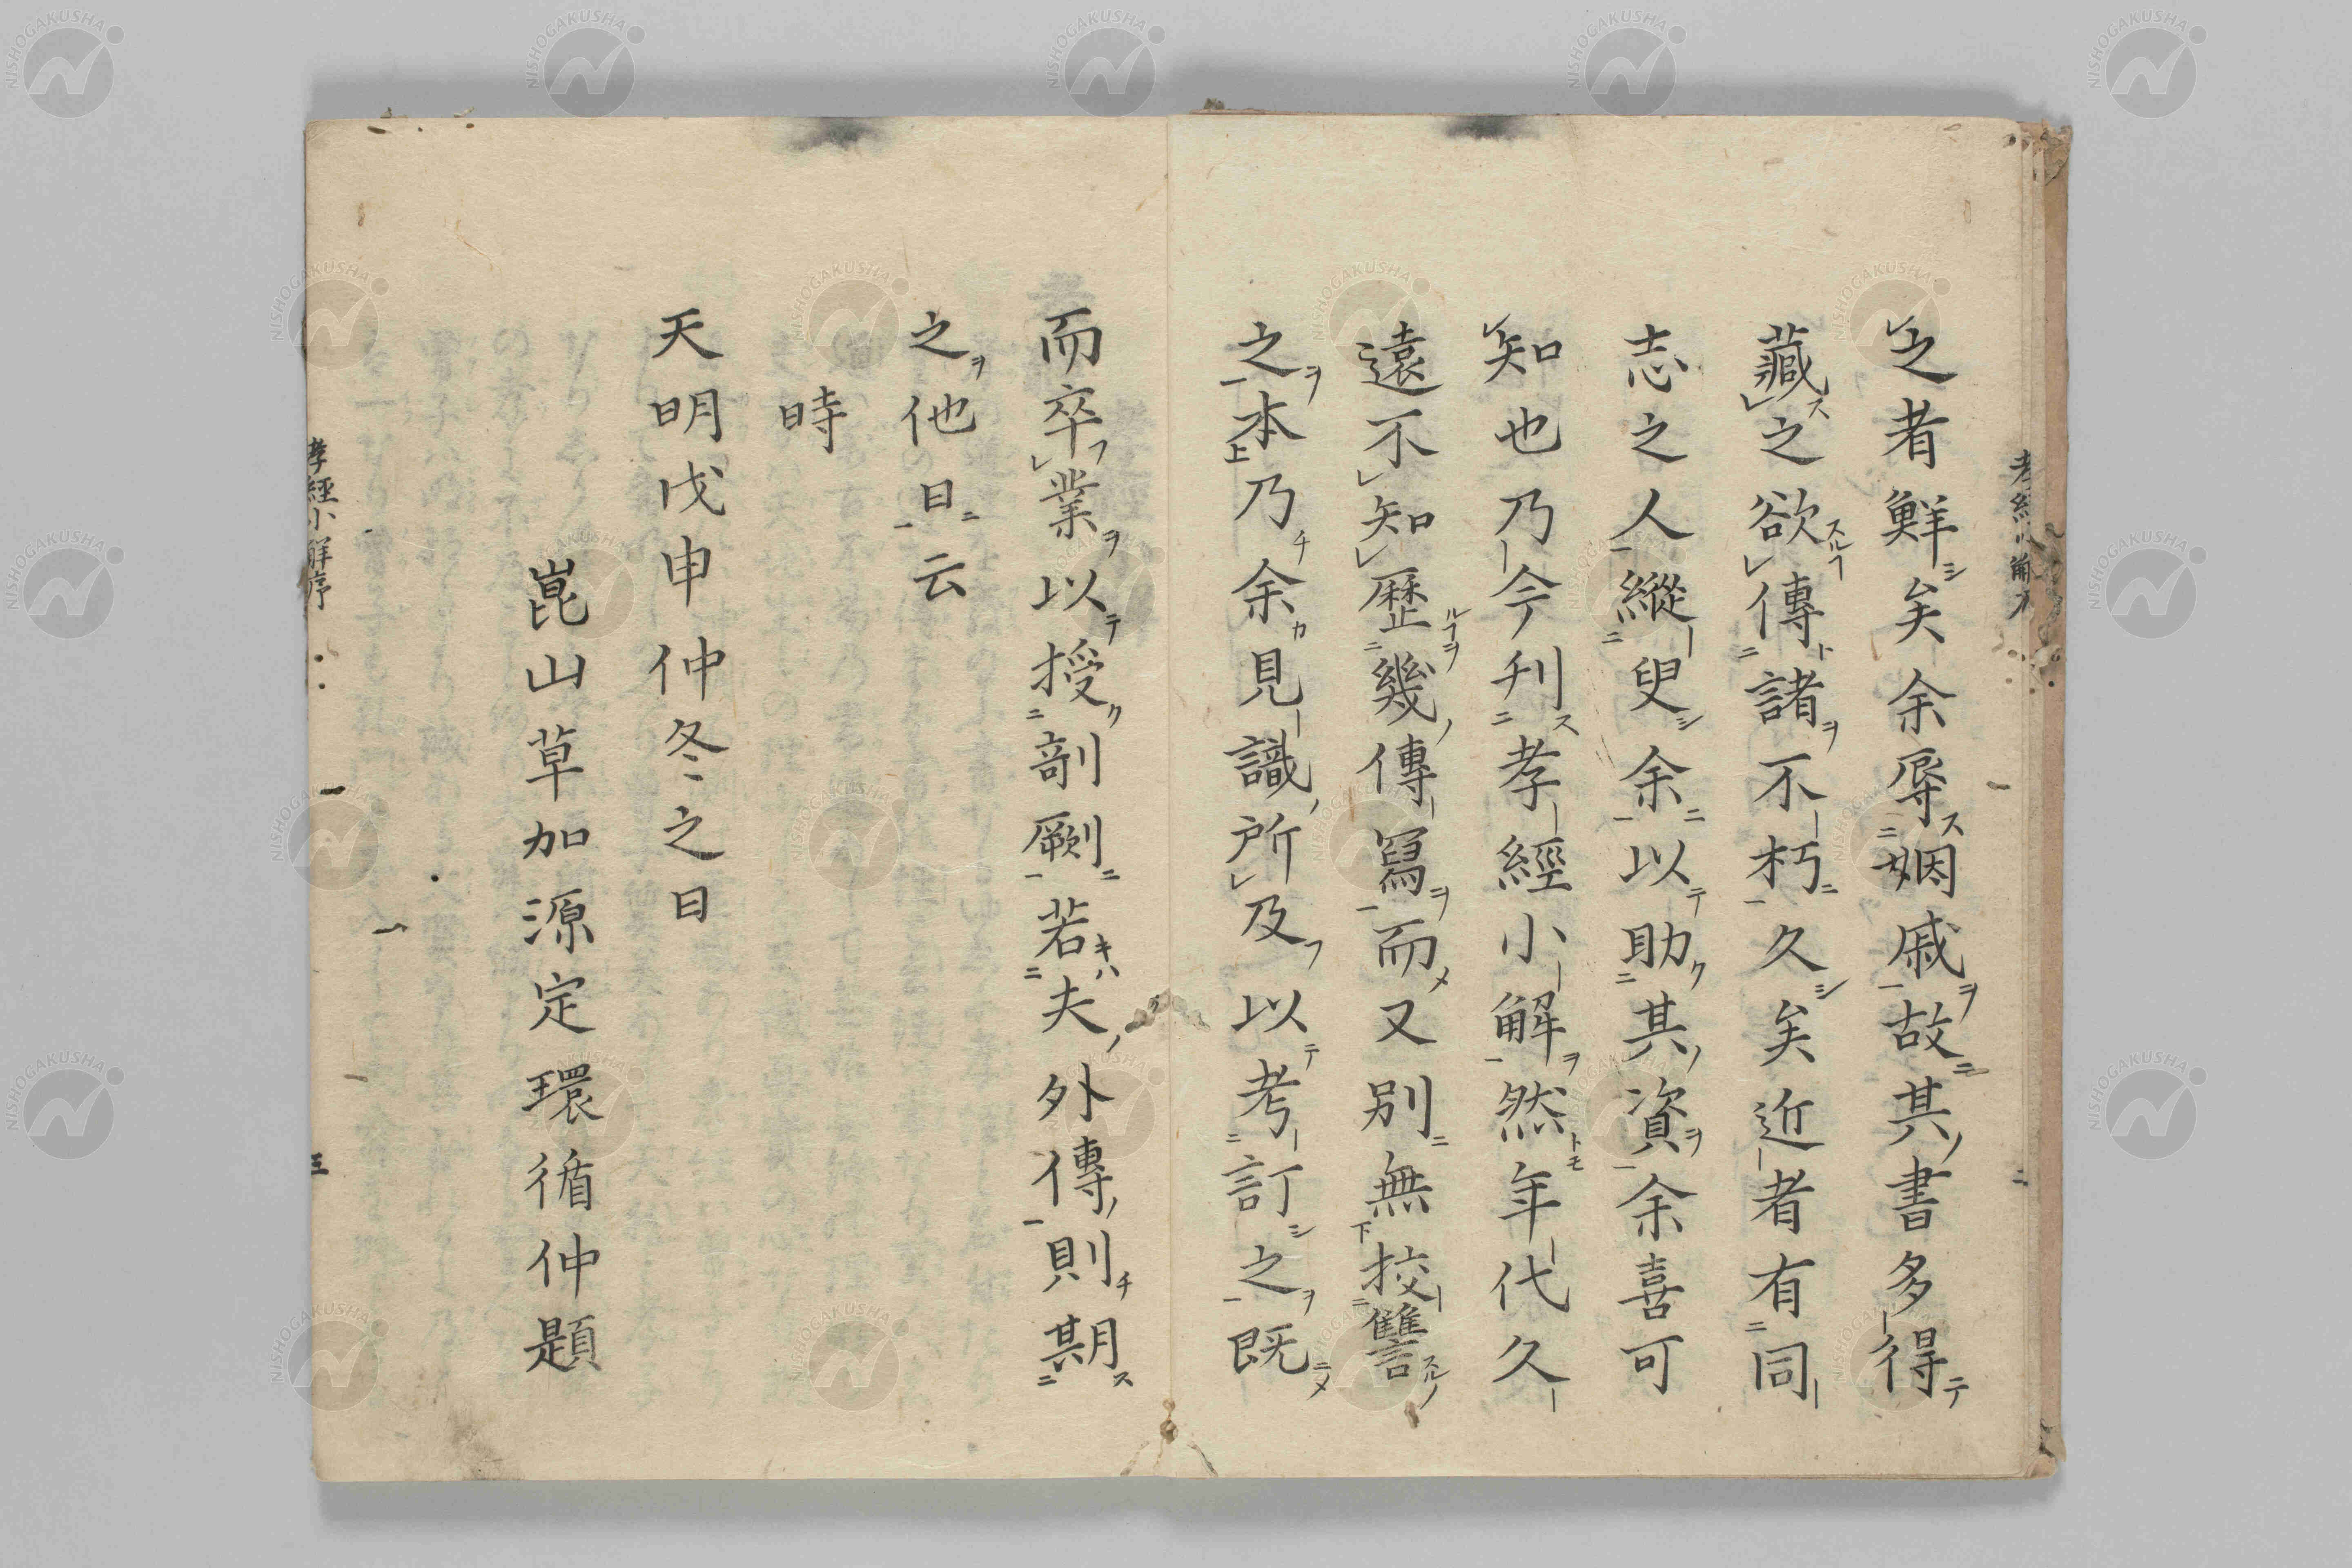 之者鮮矣余辱姻戚故其書多得
藏之欲傳諸不朽久矣近者有同
志之人縱臾余以助其資余喜可
知也乃今刋孝經小解然年代久
遠不知歷幾傳寫而又別無挍讐
之本乃余見識所及以考訂之既
而卒業以授剞劂若夫外傳則期
之他日云
時
天明戊申仲冬之日
崑山草加源定環循仲題
孝經小解序
三